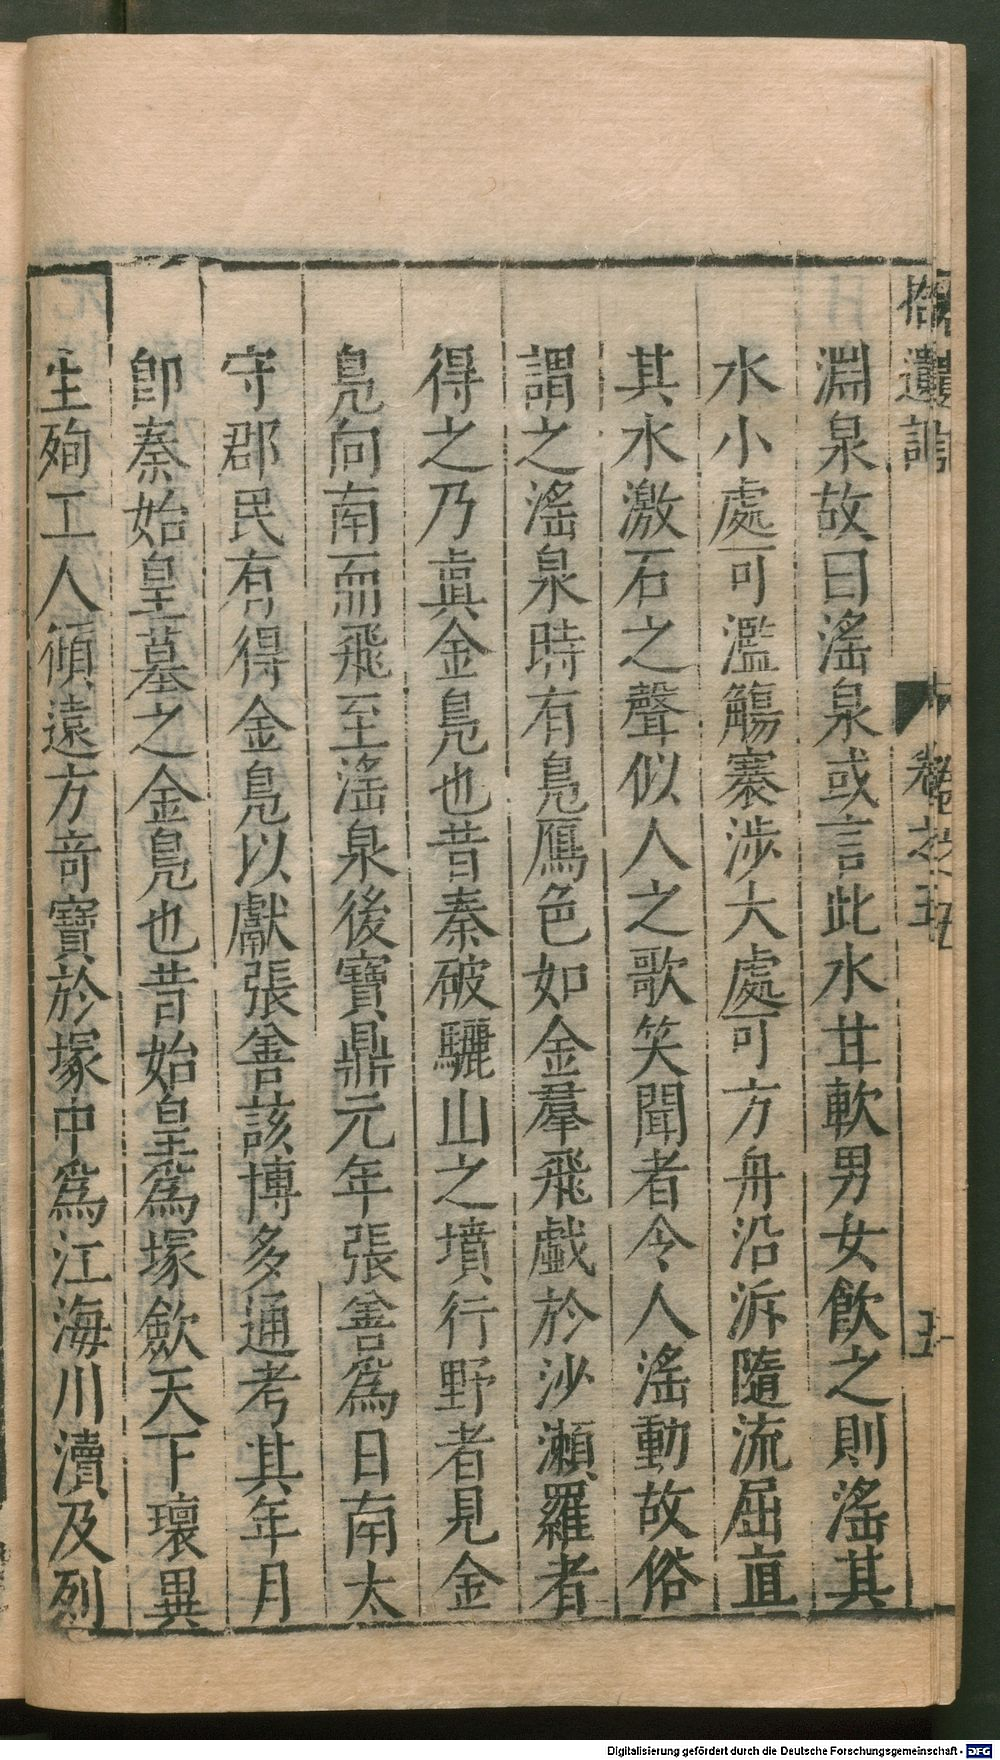 拾遺記 卷之五 五
淵泉故曰滛泉或言此水甘軟男女飲之則滛其
水小處可濫觴褰涉大處可方舟沿泝隨流屈直
其水激石之聲似人之歌笑聞者令人滛動故俗
謂之滛泉時有鳧鴈色如金羣飛戲於沙瀬羅者
得之乃眞金鳧也昔秦破驪山之墳行野者見金
鳧向南而飛至滛泉後寶鼎元年張善爲日南太
守郡民有得金鳧以獻張善該博多通考其年月
卽秦始皇墓之金鳧也昔始皇爲塚歛天下瓌異
生殉工人傾遠方奇寶於塚中爲江海川瀆及列
Digitalisierung gefördert durch die Deutsche Forschungsgemeinschaft - DFG